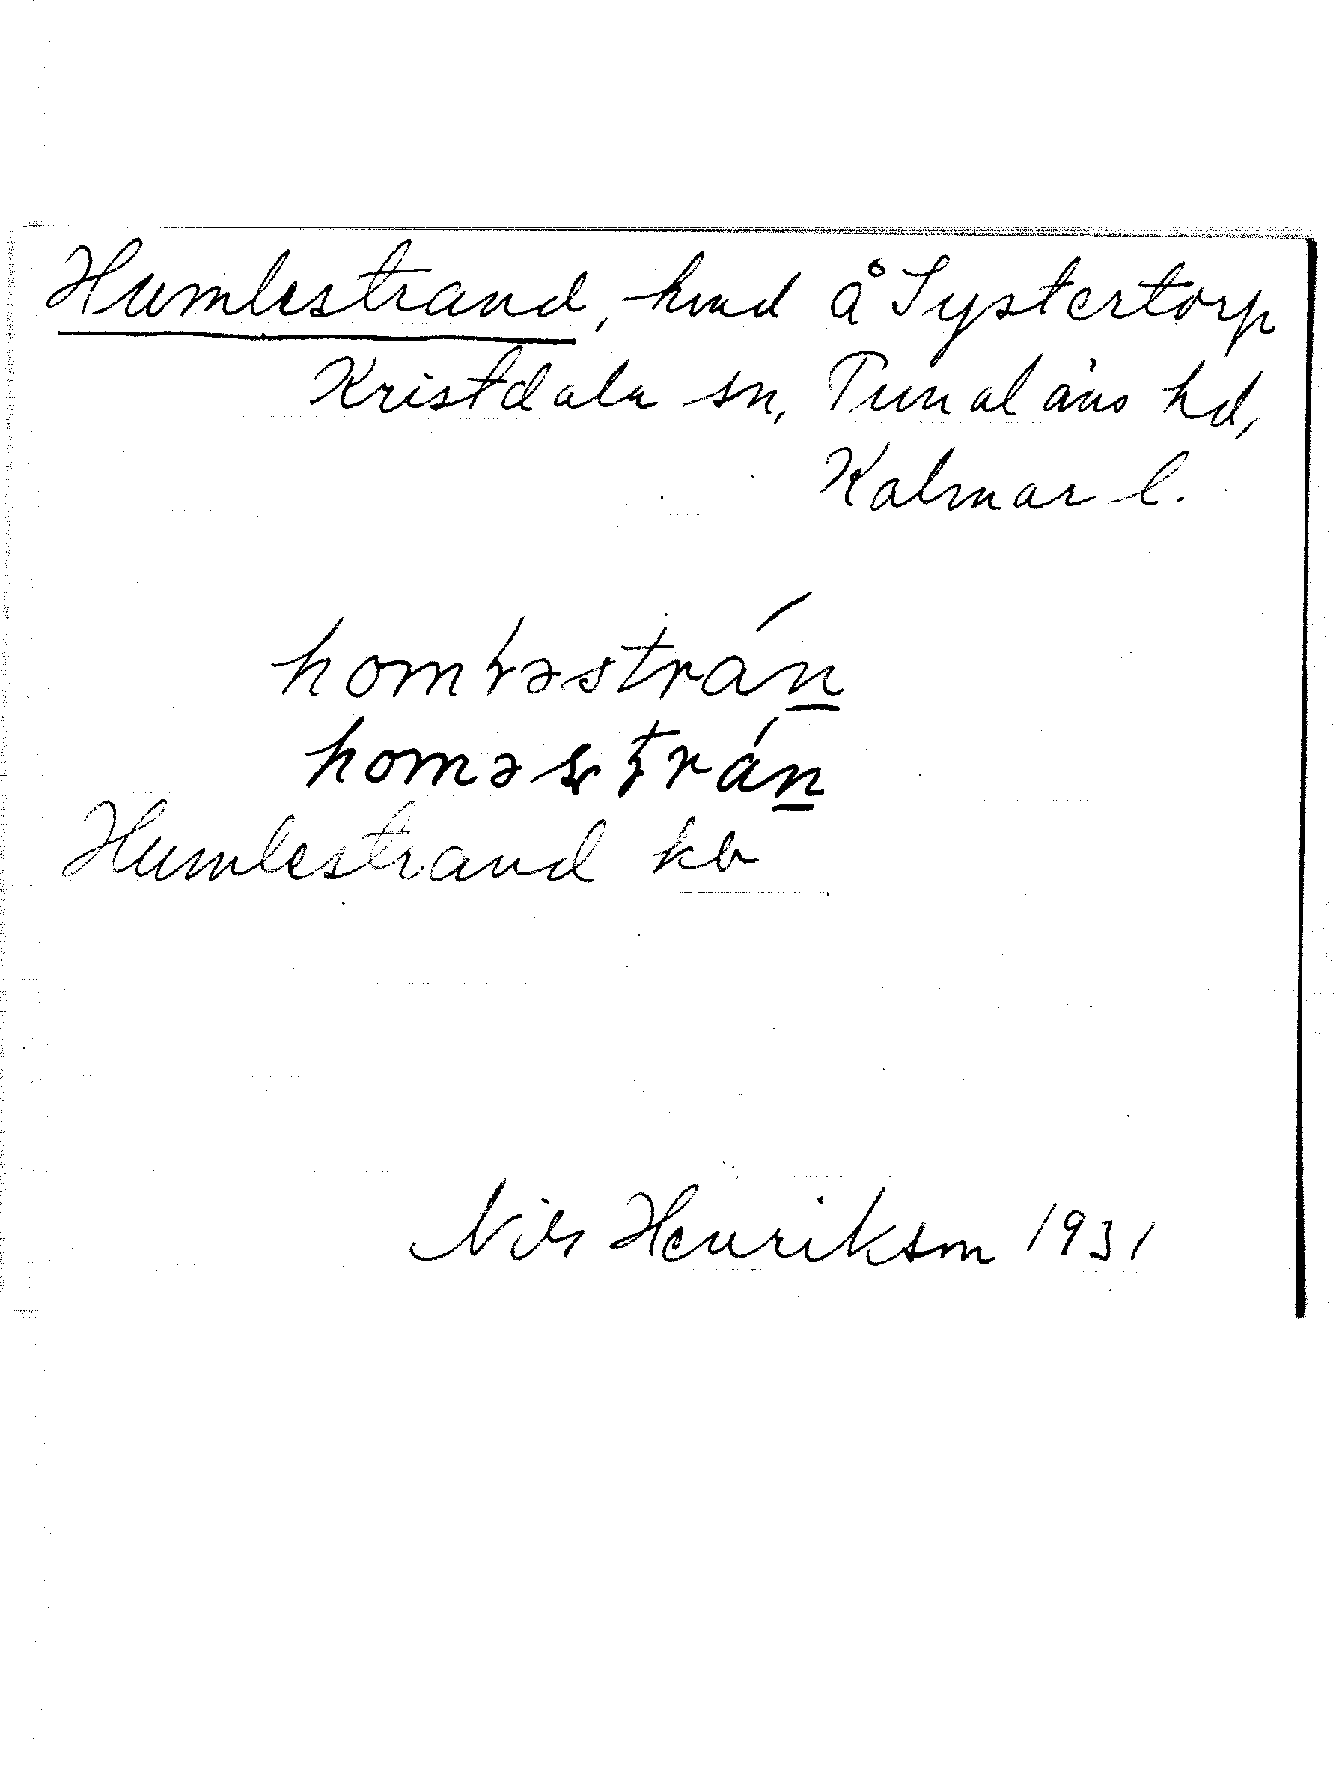 Humlestrand, hmd å Systertorp
Kristdala sn, Tunaläns hd,
Kalmar l.
homləstrán
homəstrán
Humlestrand kb
Nils Henrikson 1931